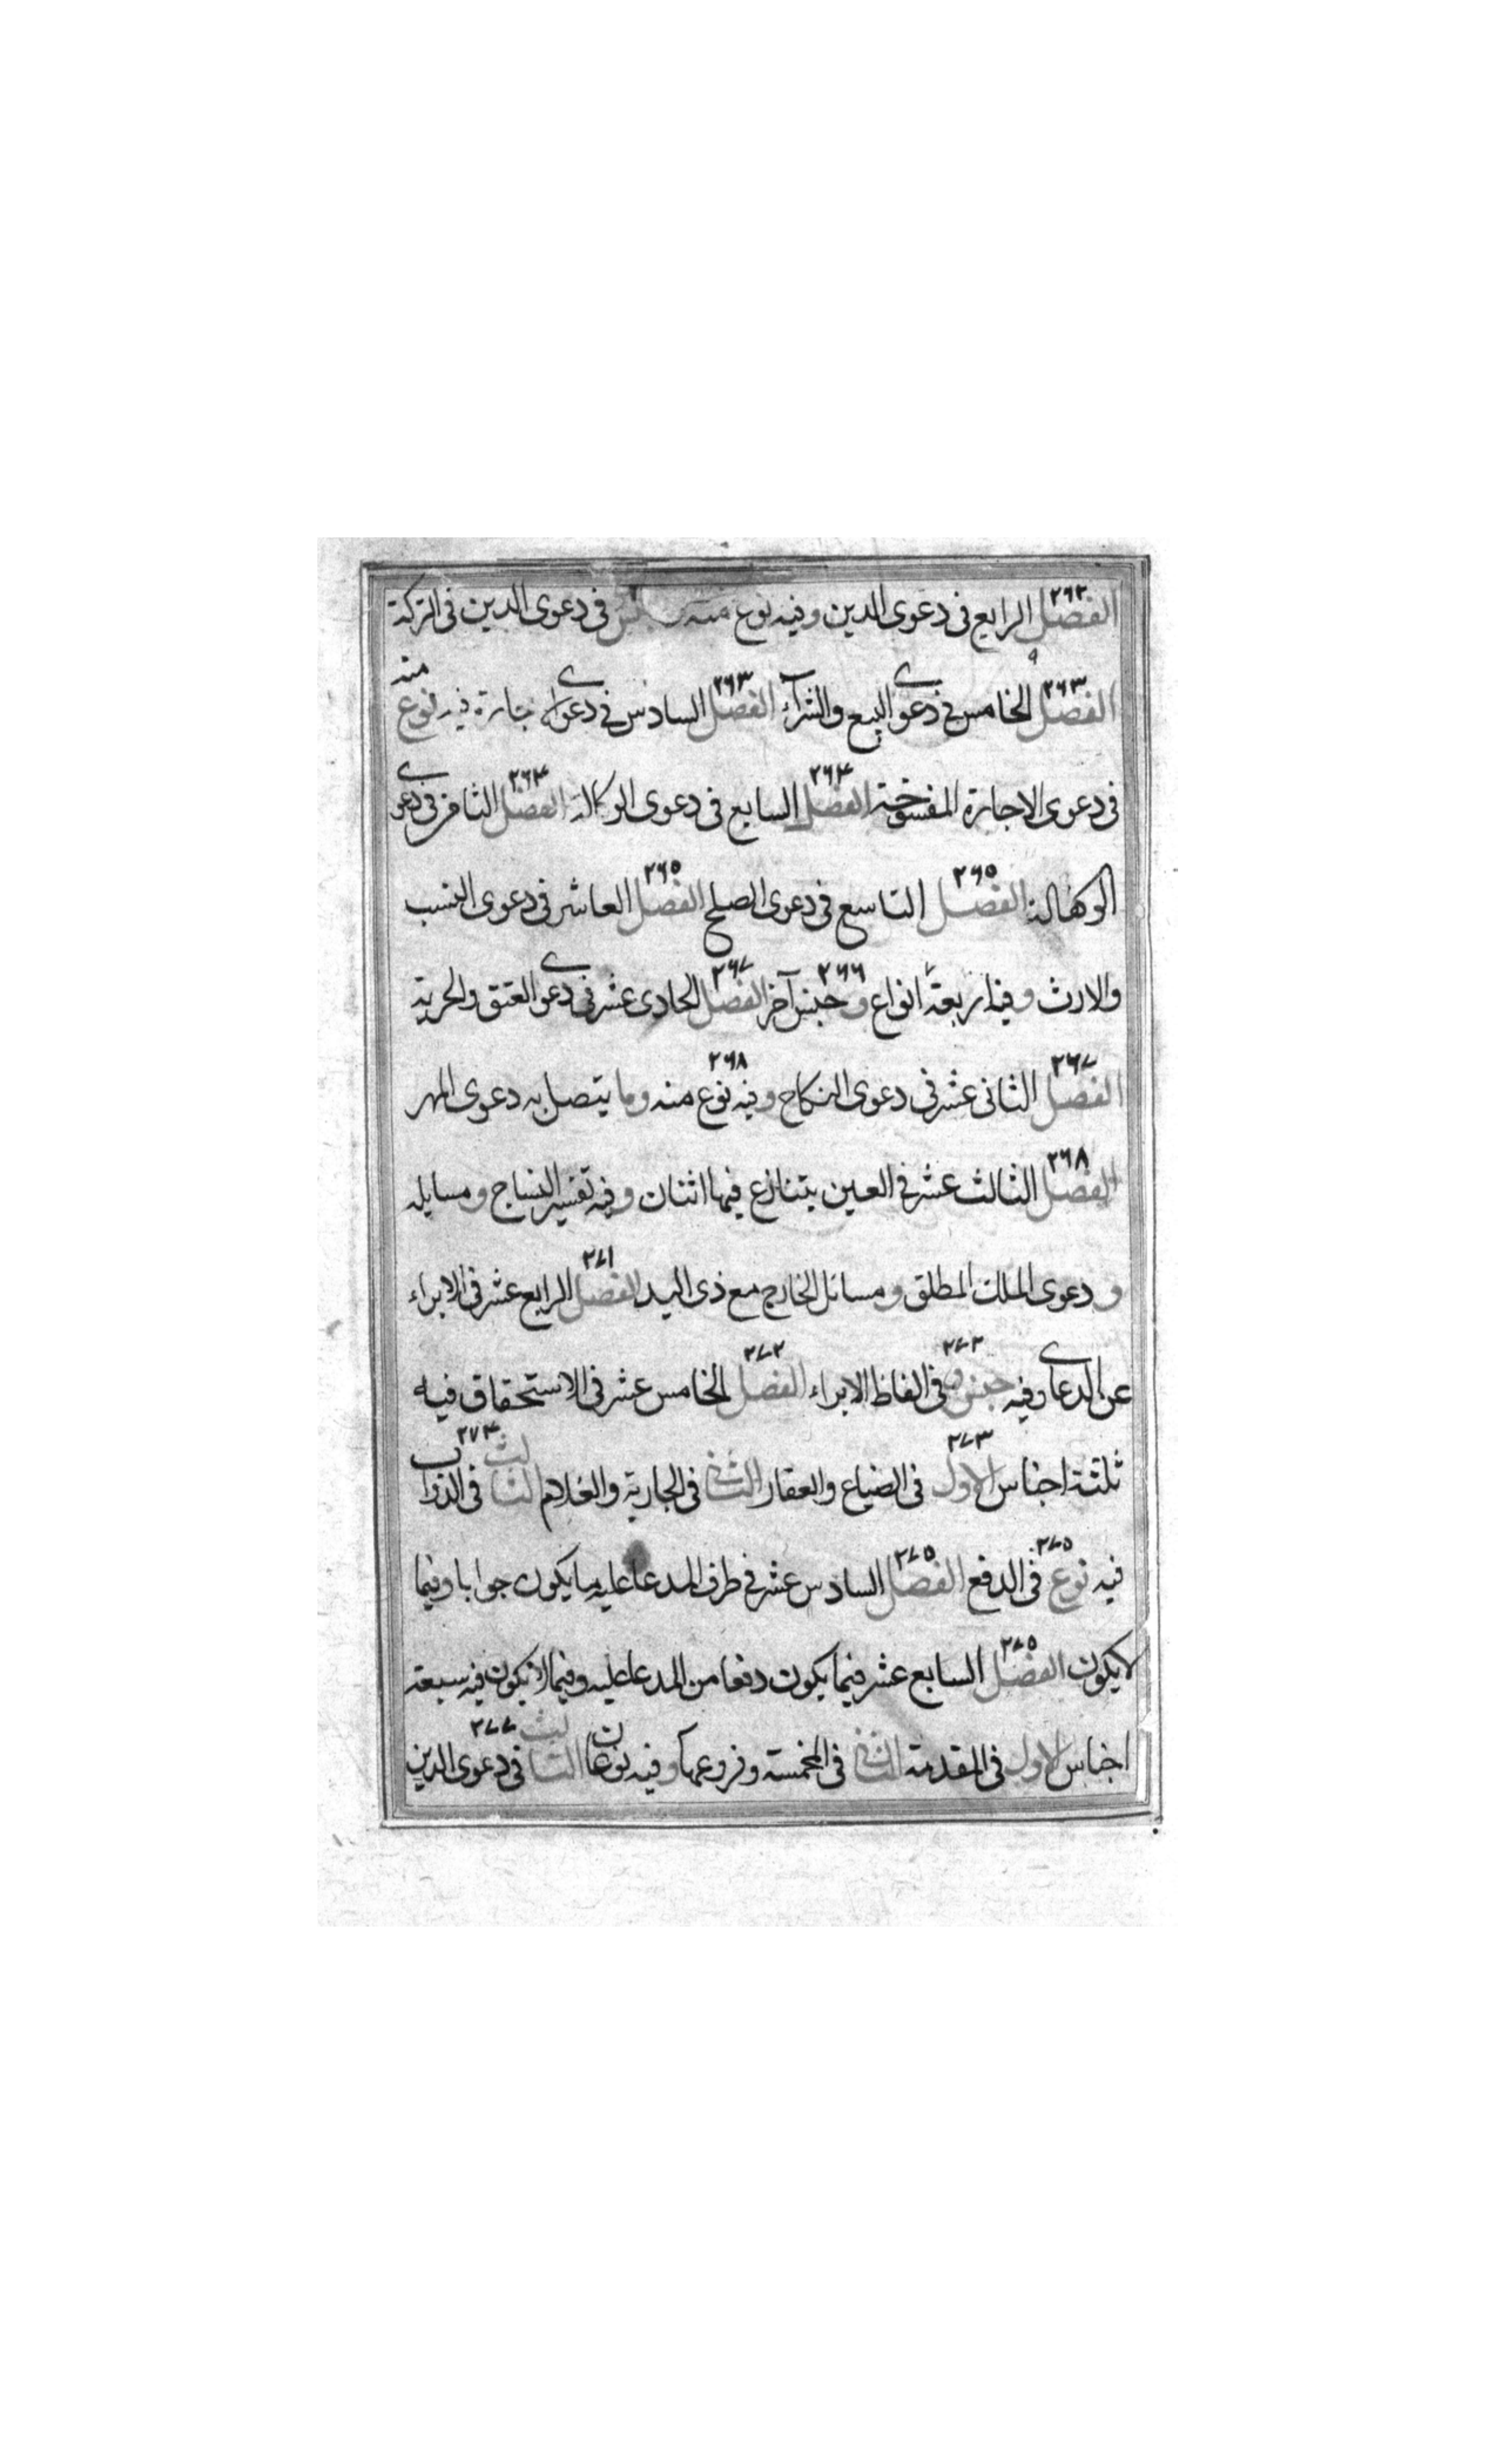 الفصل ٢٦٢ الرابع فى دعوى الدين وفيه نوع منه فى دعوى الدين فى التركة
الفصل ٢٦٣ الخامس فى دعوى البيع والشرآء الفصل ٢٦٣ السادس فى دعوى الاجارة فيه نوع منه
فى دعوى الاجارة المفسوخة الفصل ٢٦٤ السابع فى دعوى الوكالة الفصل ٢٦٤ الثامن فى دعوى
الوكفالة الفصل ٢٦٥ التاسع فى دعوى الصلح الفصل ٢٦٥ العاشر فى دعوى النسب
والارث وفيه اربعة انواع و ٢٦٦ جنس آخر الفصل ٢٦٧ الحادى عشر فى دعوى العتق والحرية
الفصل ٢٦٧ الثانى عشر فى دعوى النكاح وفيه نوع ٢٦٨ منه وما يتصل به دعوى المهر
الفصل ٢٦٨ الثالث عشر فى العين يتنازع فيها اثنان وفيه تفسير النتاج ومسايله
ودعوى الملك المطلق ومسائل الخارج مع ذى اليد الفصل ٢٧١ الرابع عشر فى الابراء
عن الدعاوى وفيه جنس ٢٧٢ فى الفاظ الابراء الفصل ٢٧٢ الخامس عشر فى الاستحقاق فيه
ثلثة اجناس الاول ٢٧٣ فى الضياع والعقار الثانى فى الجارية والغلام الثالث ٢٧٤ فى الدواب
فيه نوع ٢٧٥ فى الدفع الفصل ٢٧٥ السادس عشر فى طرف المدعا عليه ما يكون جوابا وفيما
لا يكون الفصل ٢٧٥ السابع عشر فيما يكون دفعا من المدعا عليه وفيما لا يكون فيه سبعة
اجناس الاول فى المقدمة الثانى فى المخمسة وفروعها وفيه نوعان الثالث ٢٧٧ فى دعوى الدين